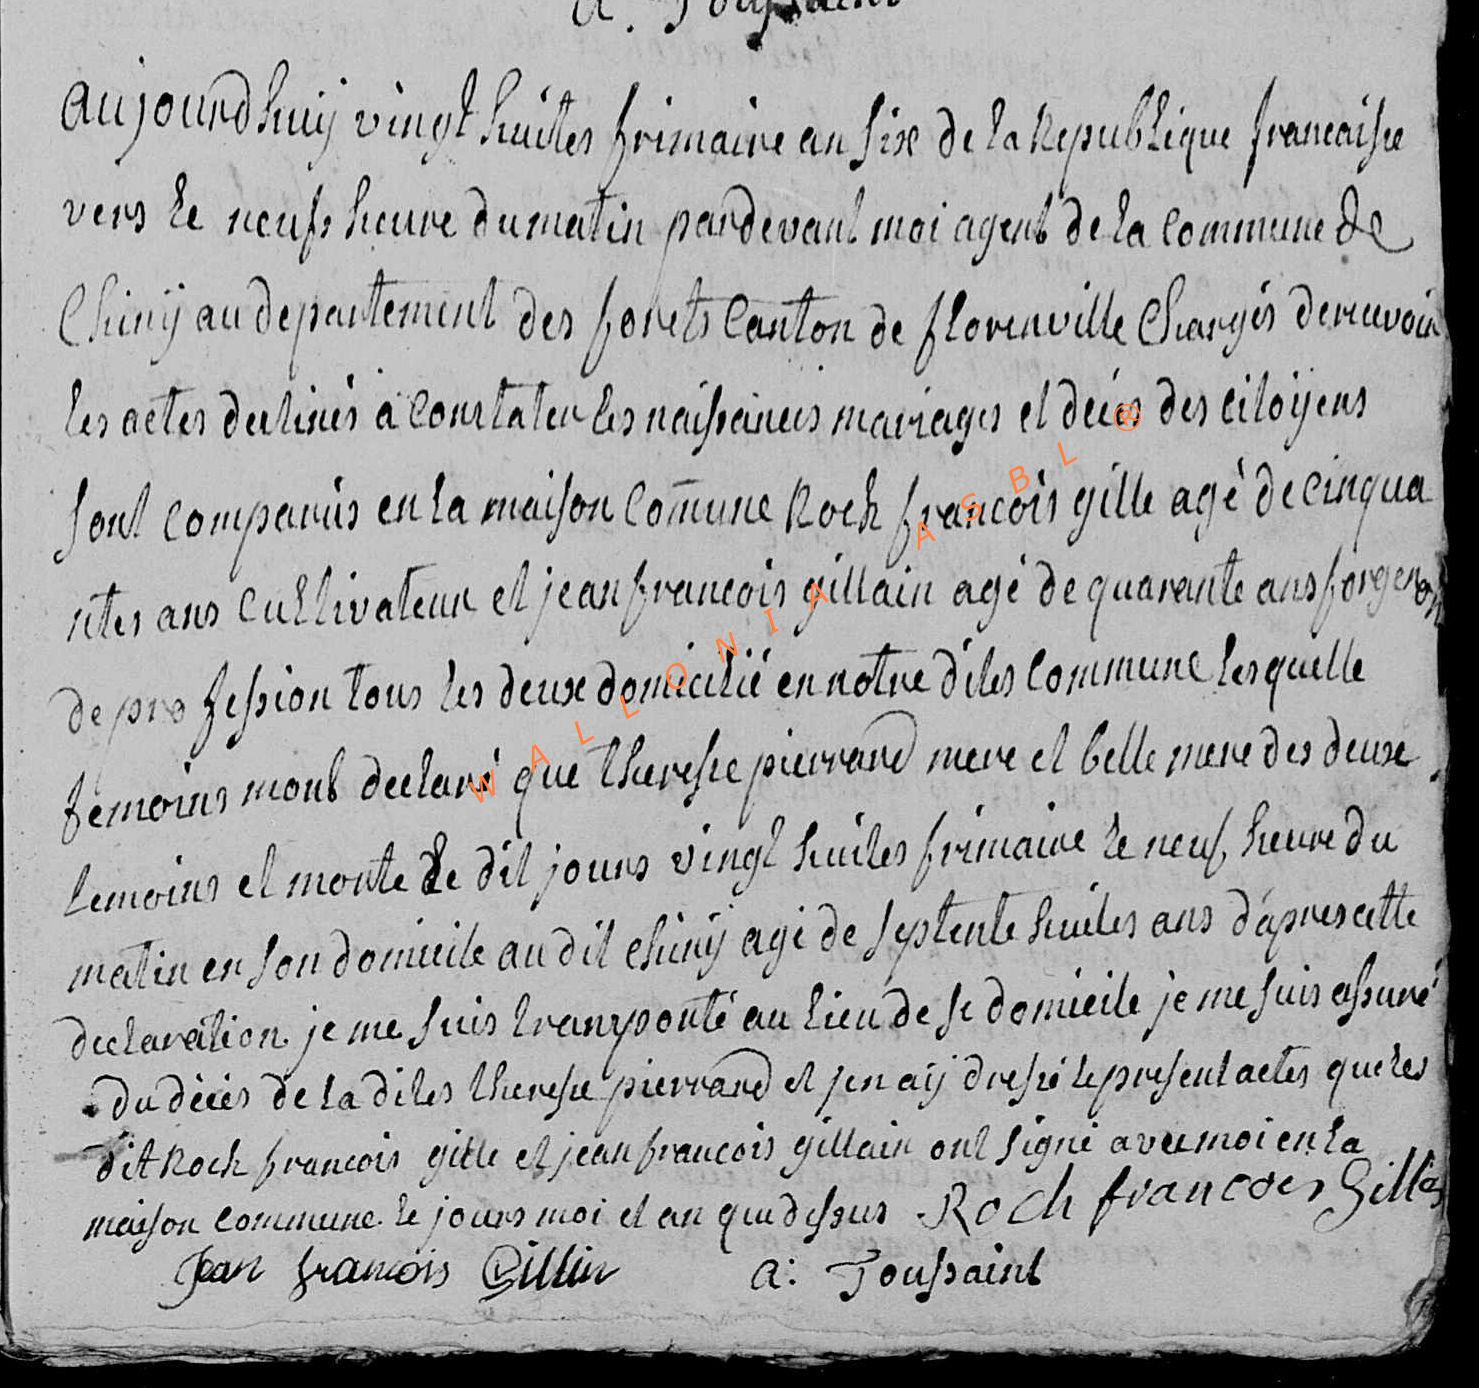 a. Toussaint
aujourdhuij vingt huites frimaire an six de la Republique francaisse
vers le neufs heure du matin pardevant moi agent de la commune de
Chinÿ au departement des forets Canton de florenville Chargés de recevoir
les actes destinés a Constater les naissances mariages et décés des citoÿens
sont comparus en la maison Com̄une Roch francois gille agé de cinqua
ntes ans cultivateur et jean francois gillain agé de quarante ans forgeron
de profession tous les deux domicilié en notre dites commune lesquelle
temoins mont declaré que theresse pierrard mere et belle mere des deux
temoins et morte Le dit jours vingt huites frimaire le neuf heure du
matin en son domicile au dit chinÿ agé de septente huites ans d'apres cette
declaration je me suis transporté au lieu de se domicile je me suis assuré
du décés de la dites theresse pierrard et jen aÿ dressé le present actes que les
dit Roch francois gille et jean francois gillain ont signé avec moi en la
maison commune le jours moi et an que dessus Roch francoes Gilles
Jean francois Gillin a: Toussaint
WALLONIA ASBL ®